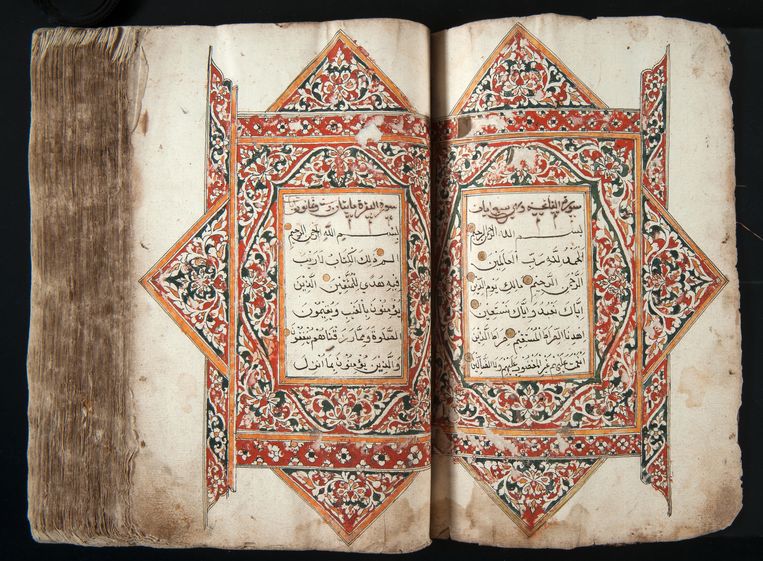 سورة الفاتحة وهي سبع ايات
بسم الله الرحمن الرحيم
الحمد لله رب العلمين
الرحمن الرحيم ملك يوم الدين
اياك نعبد واياك نستعين
اهدنا الصراط المستقيم صراط الذين
انعمت عليهم غير المغضوب عليهم ولا الضالين
سورة البقرة مايتان وست وثمانون
بسم الله الرحمن الرحيم
الم ذلك الكتاب لا ريب
فيه هدى للمتقين الذين
يؤمنون بالغيب ويقيمون
الصلوة ومما رزقناهم ينفقون
والذين يؤمنون بما انزل